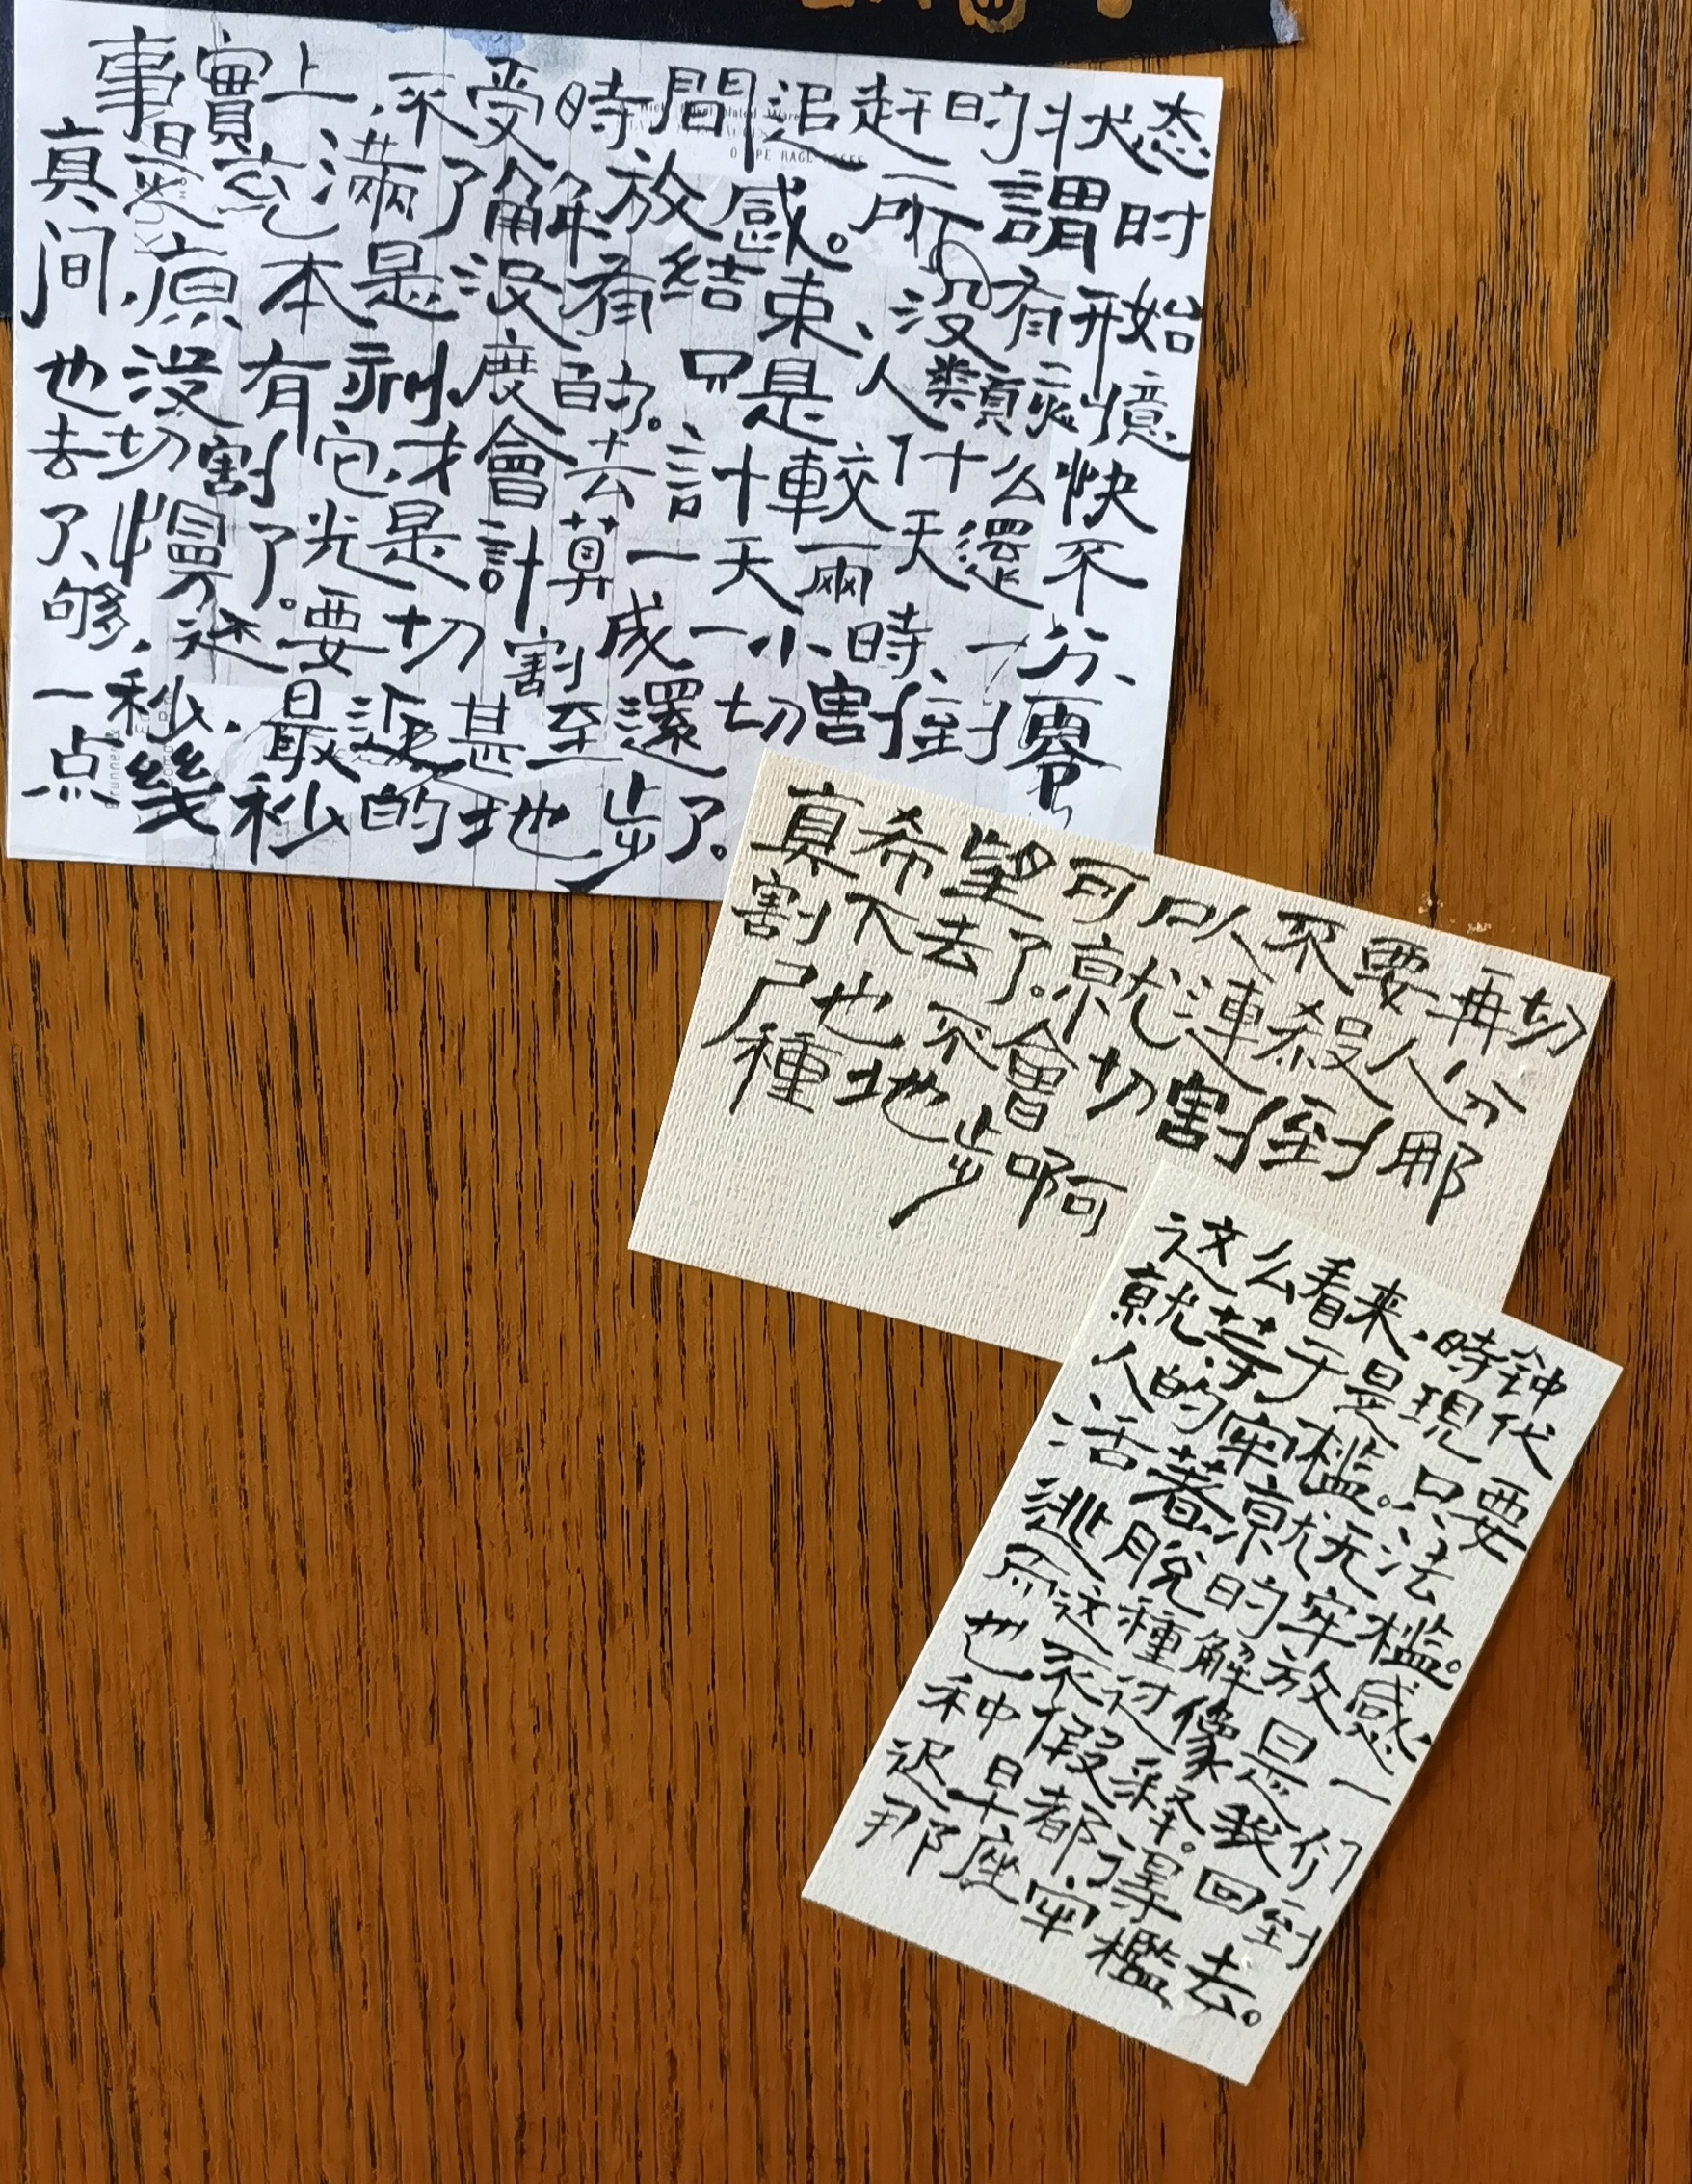 事實上，不受時間追赶的状态
真是充滿了解放感。所謂时
间，原本是沒有結束、没有开始
也沒有刻度的。只是人類憶
去切割它，才會去計較什么快
了、慢了。光是計算一天兩天還不
够，还要切割成一小時、一分、
一秒，最近甚至還切割到零
点幾秒的地步了。
真希望可以不要再切
割下去了。就連殺人分
尸也不會切割到那
種地步啊
这么看来，時钟
就等于是現代
人的牢檻。只要
活著就无法
逃脱的牢槛。
而这種解放感
也不过像是一
种假释。我们
迟早都得回到
那座牢檻去。